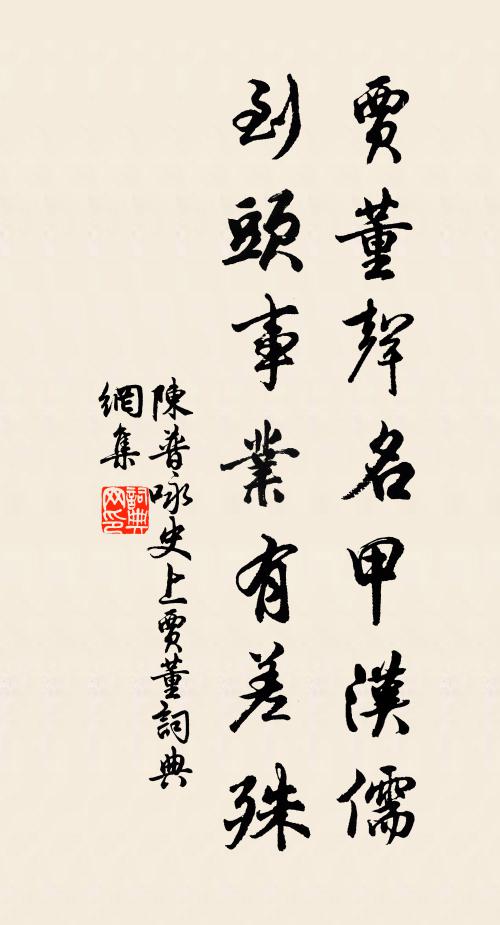 賈董聲名甲漢儒
到頭事業有差殊
陳普咏史上賈董詞典
網集
詞典網印